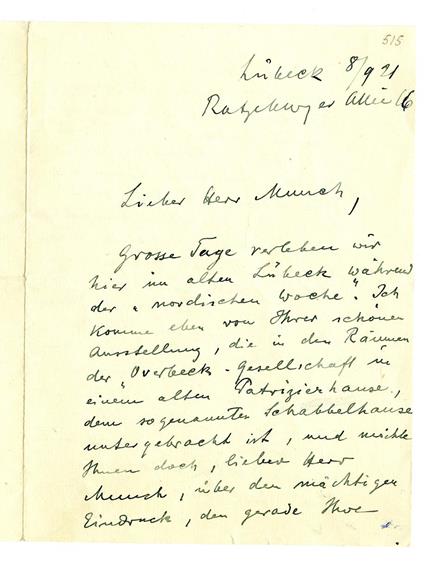 515
Lübeck 8/9 21
Ratzeburger Allee 16
Lieber Herr Munch,
Grosse Tage verleben wir
hier im alten Lübeck während
der „nordischen Woche". Ich
komme eben von Ihrer schönen
Ausstellung, die in den Räumen
der „Overbeck-Gesellschaft in
einem alten Patrizierhause,
dem sogenannten Schabbelhause
untergebracht ist, und möchte
Ihnen doch, lieber Herr
Munch, über den mächtigen
Eindruck, den gerade Ihre